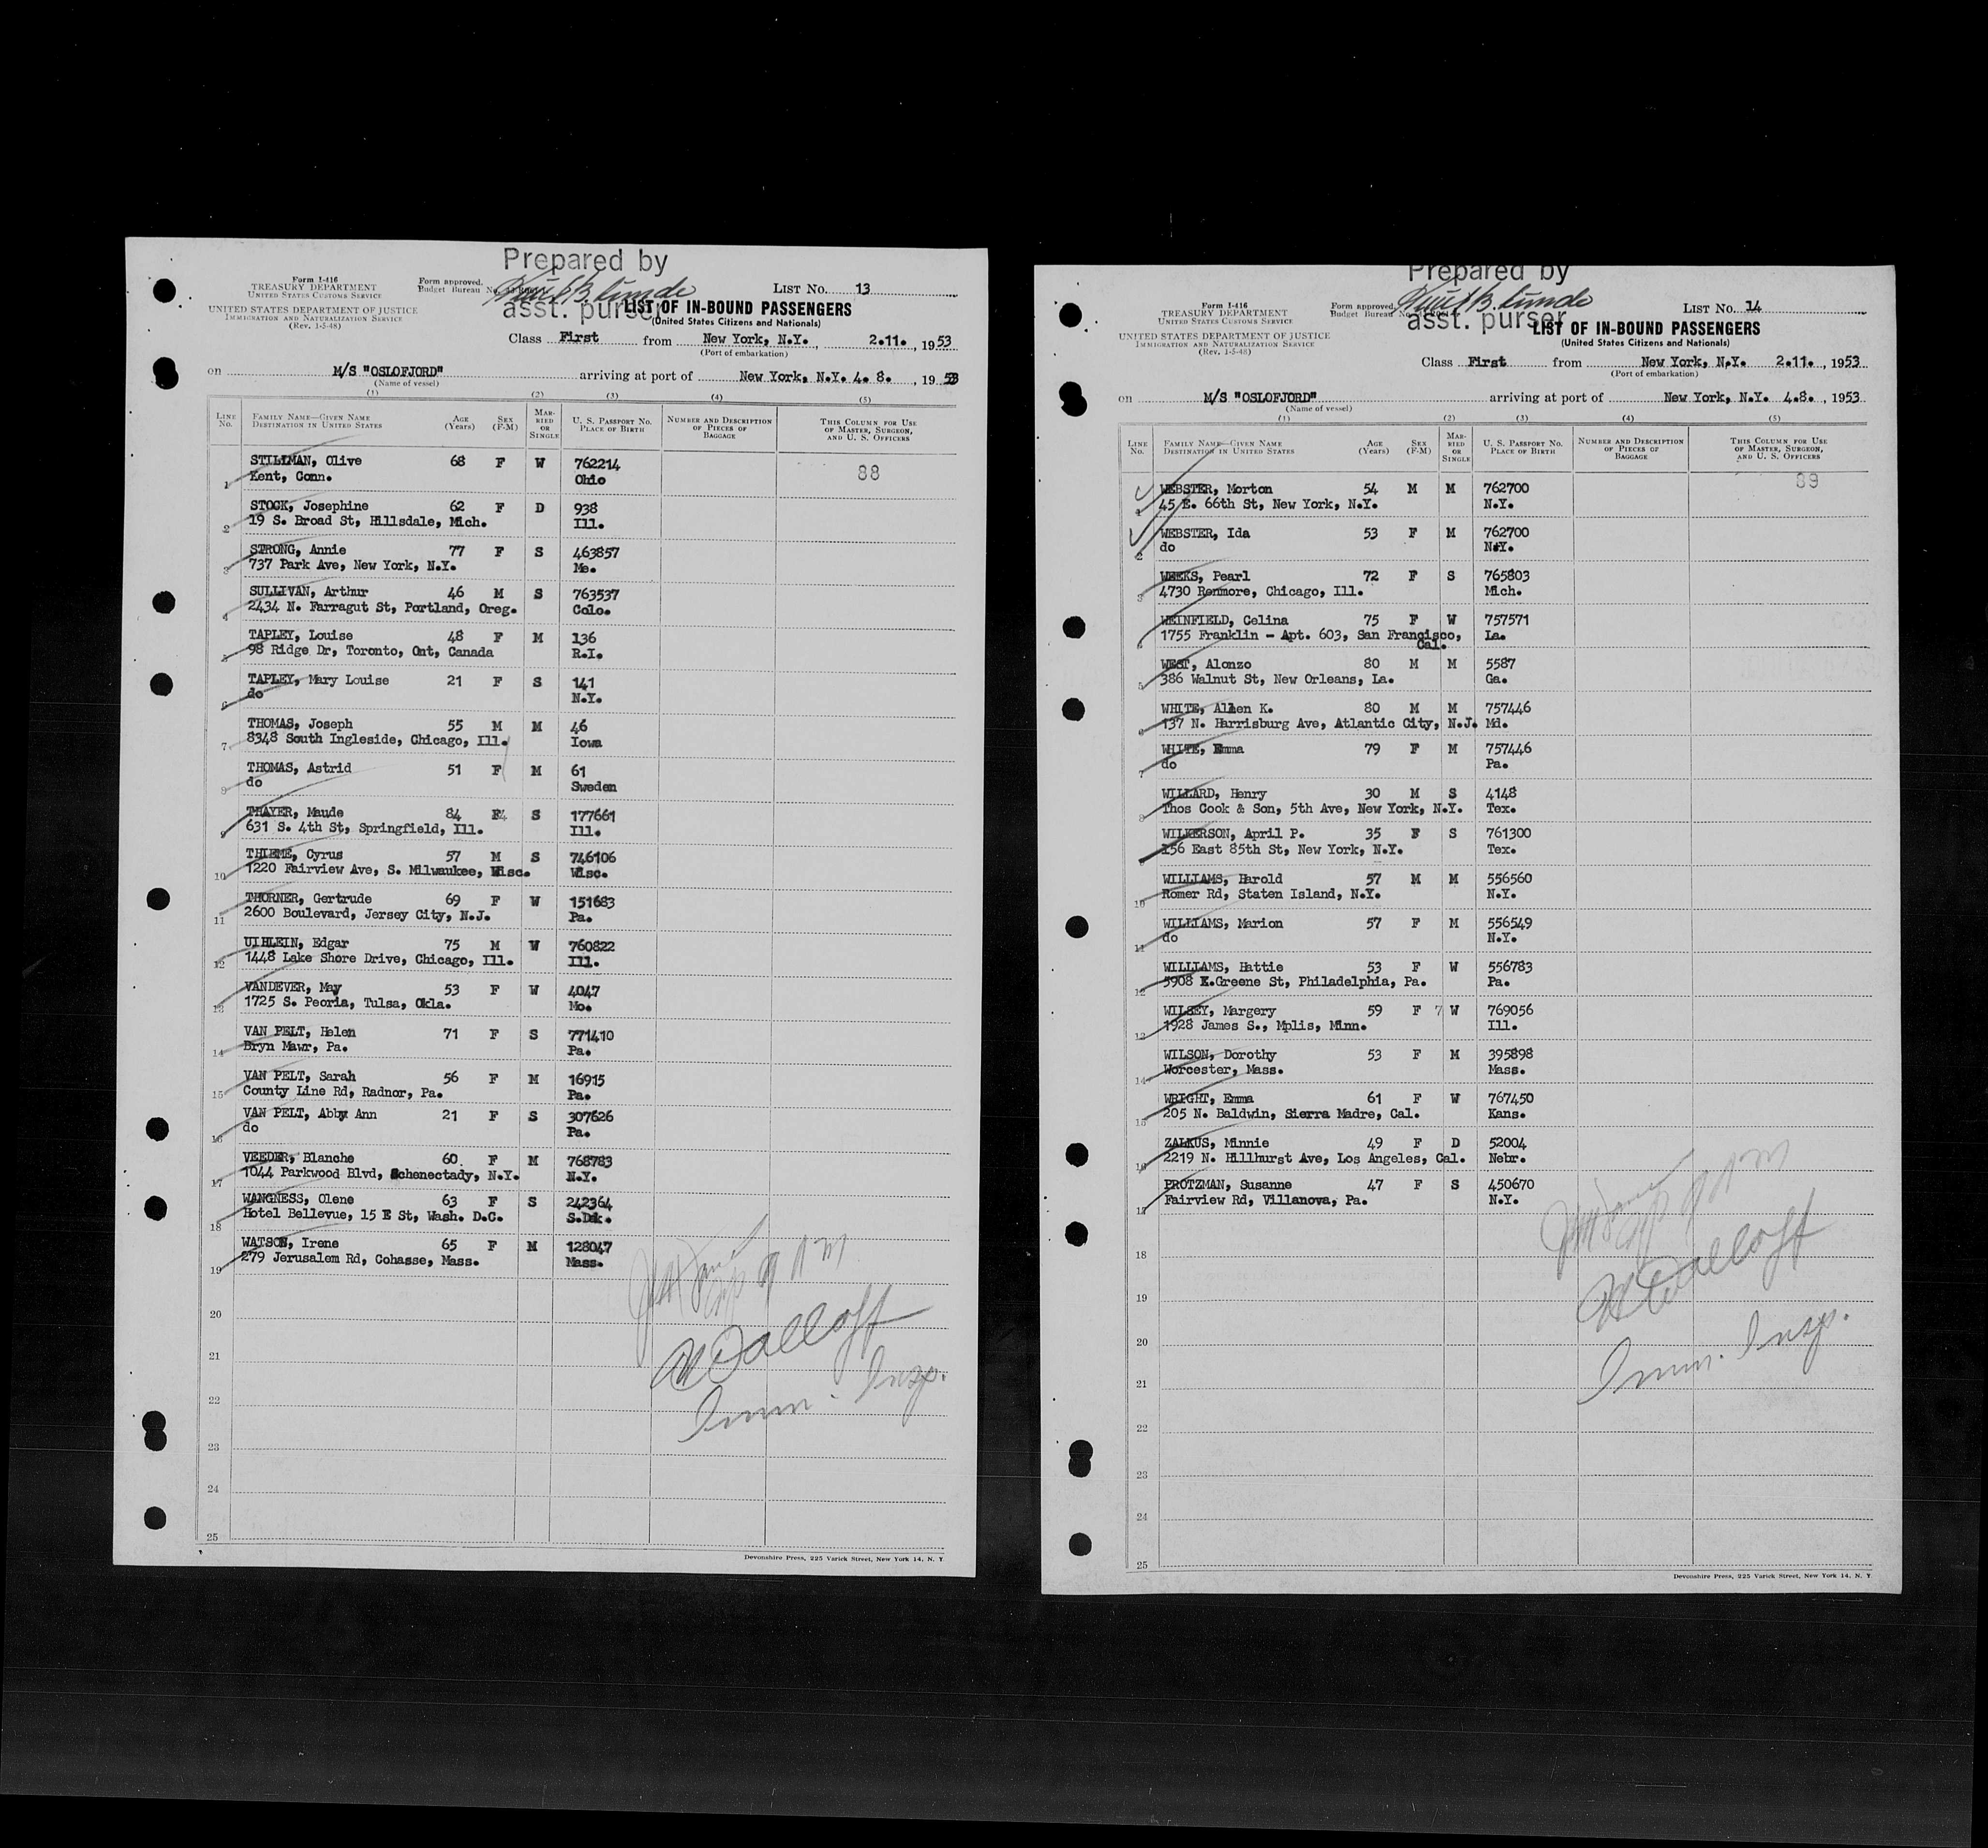 Prepared by
Form I-416
TREASURY DEPARTMENT
UNITED STATES CUSTOMS SERVICE
UNITED STATES DEPARTMENT OF JUSTICE
IMMIGRATION AND NATURALIZATION SERVICE
(Rev. 1-5-48)
Form approved.
Budget Bureau No.
asst. purser
LIST NO. 13
LIST OF IN-BOUND PASSENGERS
(United States Citizens and Nationals)
Class First from New York, N.Y., 2.11., 1953
(Port of embarkation)
on M/S "OSLOFJORD" arriving at port of New York, N.Y. 4. 8., 1953
(Name of vessel)
(1) (2) (3) (4) (5)
LINE NO. FAMILY NAME—GIVEN NAME DESTINATION IN UNITED STATES AGE (Years) SEX (F-M) MARRIED OR SINGLE U. S. PASSPORT NO. PLACE OF BIRTH NUMBER AND DESCRIPTION OF PIECES OF BAGGAGE THIS COLUMN FOR USE OF MASTER, SURGEON, AND U. S. OFFICERS
STILLMAN, Olive 68 F W 762214 88
1 Kent, Conn. Ohio
STOCK, Josephine 62 F D 938
2 19 S. Broad St, Hillsdale, Mich. Ill.
STRONG, Annie 77 F S 463857
3 737 Park Ave, New York, N.Y. Me.
SULLIVAN, Arthur 46 M S 763537
4 2434 N. Farragut St, Portland, Oreg. Colo.
TAPLEY, Louise 48 F M 136
5 98 Ridge Dr, Toronto, Ont, Canada R.I.
TAPLEY, Mary Louise 21 F S 141
6 do N.Y.
THOMAS, Joseph 55 M M 46
7 8348 South Ingleside, Chicago, Ill. Iowa
THOMAS, Astrid 51 F M 61
8 do Sweden
THAYER, Maude 84 F S 177661
9 631 S. 4th St, Springfield, Ill. Ill.
THIEME, Cyrus 57 M S 746106
10 1220 Fairview Ave, S. Milwaukee, Wisc. Wisc.
THORNER, Gertrude 69 F W 151683
11 2600 Boulevard, Jersey City, N.J. Pa.
UIHLEIN, Edgar 75 M W 760822
12 1448 Lake Shore Drive, Chicago, Ill. Ill.
VANDEVER, May 53 F W 4047
13 1725 S. Peoria, Tulsa, Okla. Mo.
VAN PELT, Helen 71 F S 771410
14 Bryn Mawr, Pa. Pa.
VAN PELT, Sarah 56 F M 16915
15 County Line Rd, Radnor, Pa. Pa.
VAN PELT, Abby Ann 21 F S 307626
16 do Pa.
VEEDER, Blanche 60 F M 768783
17 1044 Parkwood Blvd, Schenectady, N.Y. N.Y.
WANGNESS, Olene 63 F S 242364
18 Hotel Bellevue, 15 E St, Wash. D.C. S.Dak.
WATSON, Irene 65 F M 128047
19 279 Jerusalem Rd, Cohasse, Mass. Mass.
20
21
22
Imm. Insp.
23
24
25
Devonshire Press, 225 Varick Street, New York 14, N. Y.
Prepared by
Form I-416
TREASURY DEPARTMENT
UNITED STATES CUSTOMS SERVICE
UNITED STATES DEPARTMENT OF JUSTICE
IMMIGRATION AND NATURALIZATION SERVICE
(Rev. 1-5-48)
Form approved.
Budget Bureau No.
asst. purser
LIST NO. 14
LIST OF IN-BOUND PASSENGERS
(United States Citizens and Nationals)
Class First from New York, N.Y. 2.11., 1953
(Port of embarkation)
on M/S "OSLOFJORD" arriving at port of New York, N.Y. 4.8., 1953
(Name of vessel)
(1) (2) (3) (4) (5)
LINE NO. FAMILY NAME—GIVEN NAME DESTINATION IN UNITED STATES AGE (Years) SEX (F-M) MARRIED OR SINGLE U. S. PASSPORT NO. PLACE OF BIRTH NUMBER AND DESCRIPTION OF PIECES OF BAGGAGE THIS COLUMN FOR USE OF MASTER, SURGEON, AND U. S. OFFICERS
WEBSTER, Morton 54 M M 762700 89
1 45 E. 66th St, New York, N.Y. N.Y.
WEBSTER, Ida 53 F M 762700
2 do N.Y.
WEEKS, Pearl 72 F S 765803
3 4730 Renmore, Chicago, Ill. Mich.
WEINFIELD, Celina 75 F W 757571
4 1755 Franklin - Apt. 603, San Francisco, La.
Cal.
WEST, Alonzo 80 M M 5587
5 386 Walnut St, New Orleans, La. Ga.
WHITE, Allen K. 80 M M 757446
6 137 N. Harrisburg Ave, Atlantic City, N.J. Md.
WHITE, Emma 79 F M 757446
7 do Pa.
WILLARD, Henry 30 M S 4148
8 Thos Cook & Son, 5th Ave, New York, N.Y. Tex.
WILKERSON, April P. 35 F S 761300
9 156 East 85th St, New York, N.Y. Tex.
WILLIAMS, Harold 57 M M 556560
10 Romer Rd, Staten Island, N.Y. N.Y.
WILLIAMS, Marion 57 F M 556549
11 do N.Y.
WILLIAMS, Hattie 53 F W 556783
12 5908 K.Greene St, Philadelphia, Pa. Pa.
WILSEY, Margery 59 F 7 W 769056
13 1928 James S., Mplis, Minn. Ill.
WILSON, Dorothy 53 F M 395898
14 Worcester, Mass. Mass.
WRIGHT, Emma 61 F W 767450
15 205 N. Baldwin, Sierra Madre, Cal. Kans.
ZALKUS, Minnie 49 F D 52004
16 2219 N. Hillhurst Ave, Los Angeles, Cal. Nebr.
PROTZMAN, Susanne 47 F S 450670
17 Fairview Rd, Villanova, Pa. N.Y.
18
19
20
Imm. Insp.
21
22
23
24
25
Devonshire Press, 225 Varick Street, New York 14, N. Y.